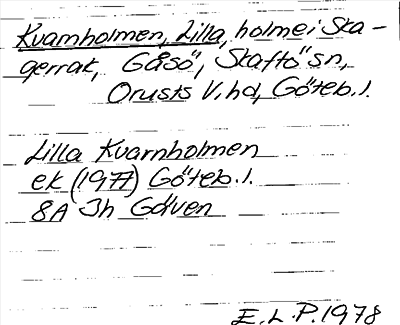 Kvarnholmen, Lilla, holme i Ska-
gerrak, Gåsö, Skaftö sn,
Orusts V. hd, Göteb. l.
Lilla Kvarnholmen
ek (1977) Göteb. l.
8A Jh Gåven
E. L. P. 1978